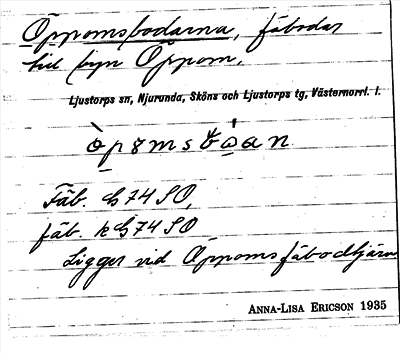 Öppomsbodarna, fäbodar
till byn Öppom.
Ljustorps sn, Njurunda, Sköns och Ljustorps tg, Västernorrl. l.
Fäb. G74SO,
fäb. k G74SO
Ligger vid Öppoms fäbodtjärn
ANNA-LISA ERICSON 1935